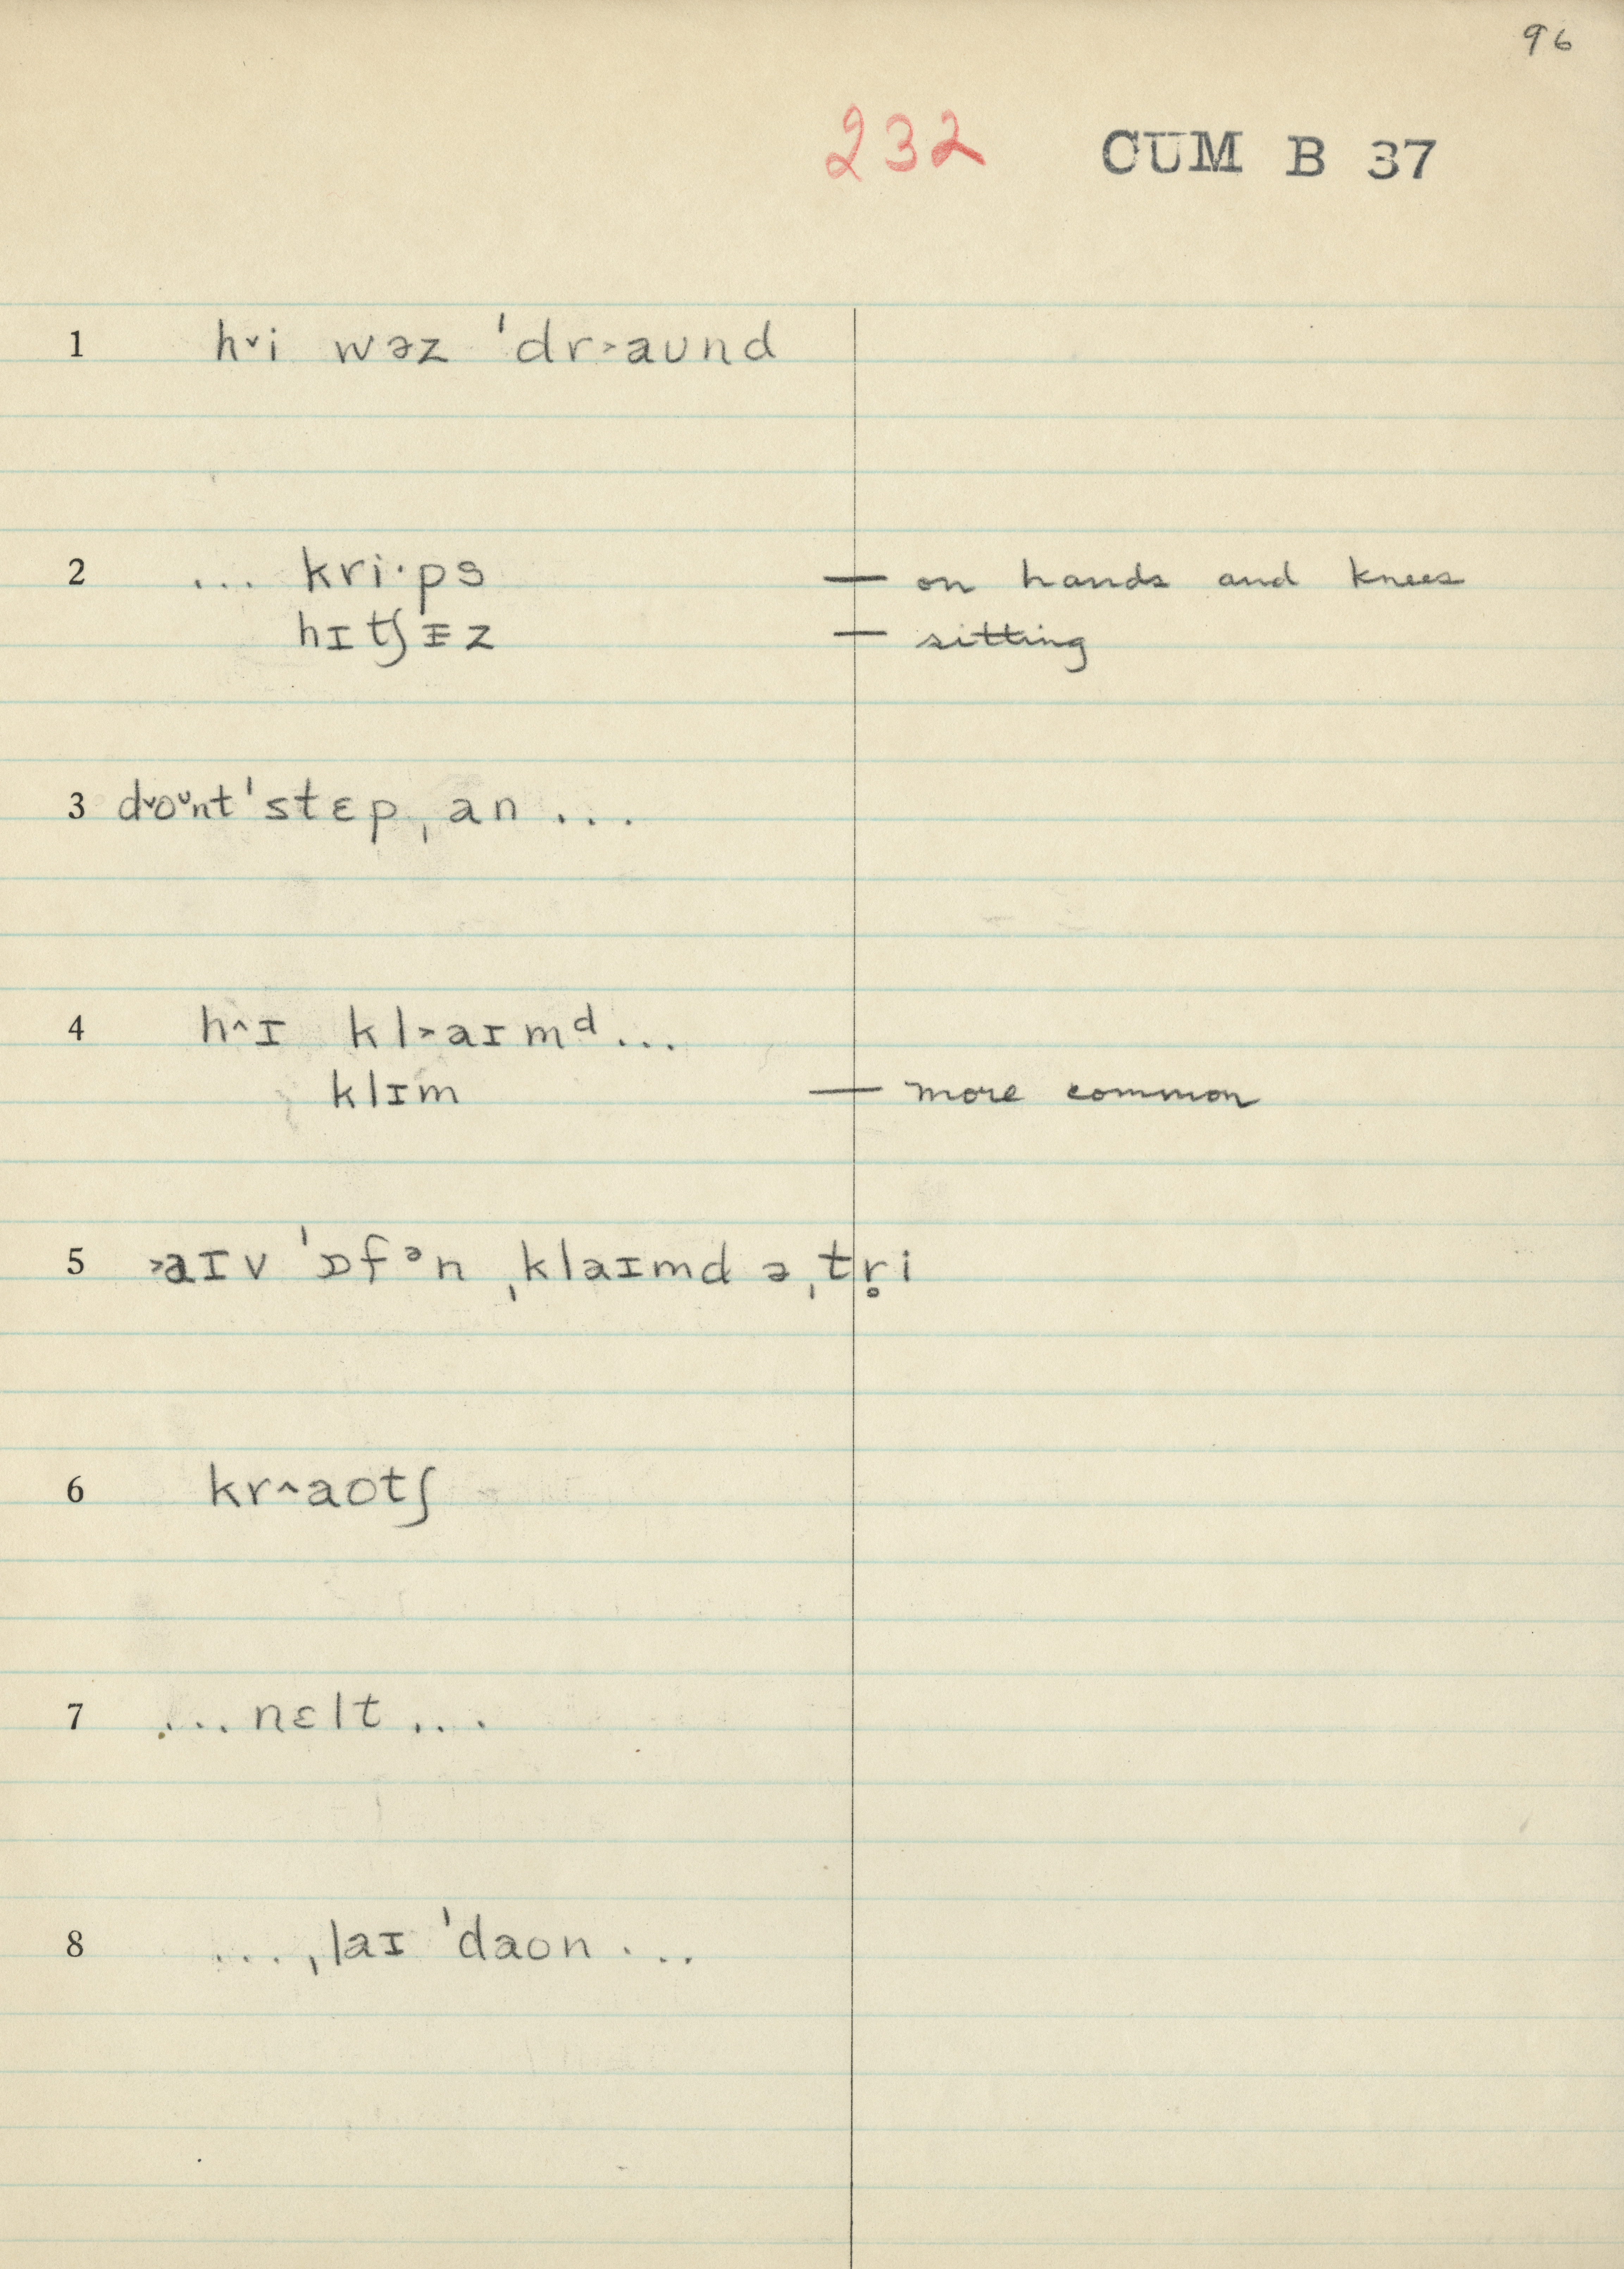 96
232 CUM B 37
1 h˅i wəz ˈdr˃aʊnd
2 ... kri·ps — on hands and knees
hɪtʃᵻz — sitting
3 d˅o˅nt ˈstɛp ˌan ...
4 h˄ɪ kl˃aɪmᵈ...
klɪm — more common
5 ˃aɪv ˈɒfᵊn ˌklaɪmd ə ˌtr̥i
6 kr˄aotʃ
7 ...nɛlt...
8 ... ˌlaɪ ˈdaon ...